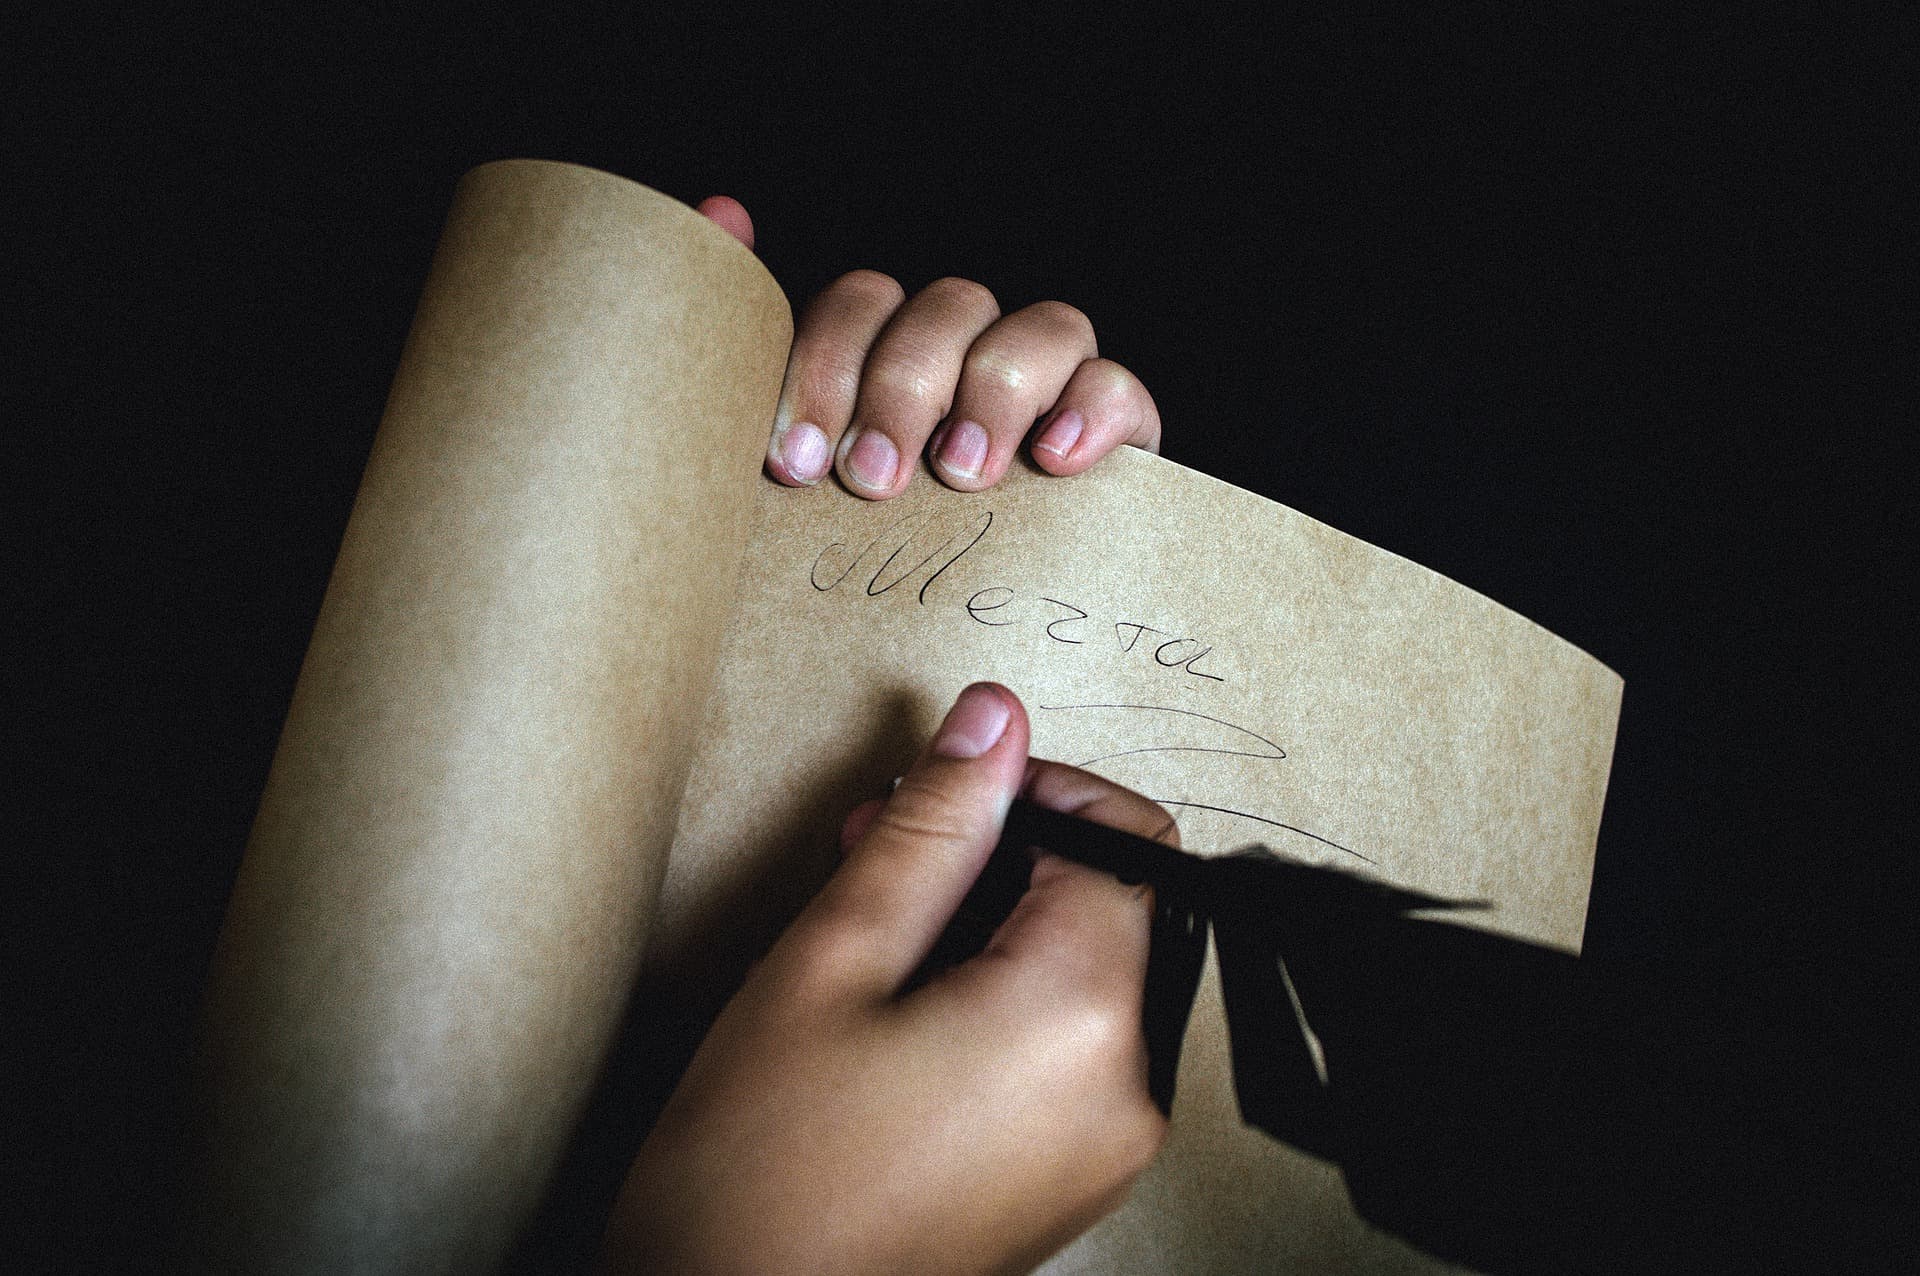 Мечта